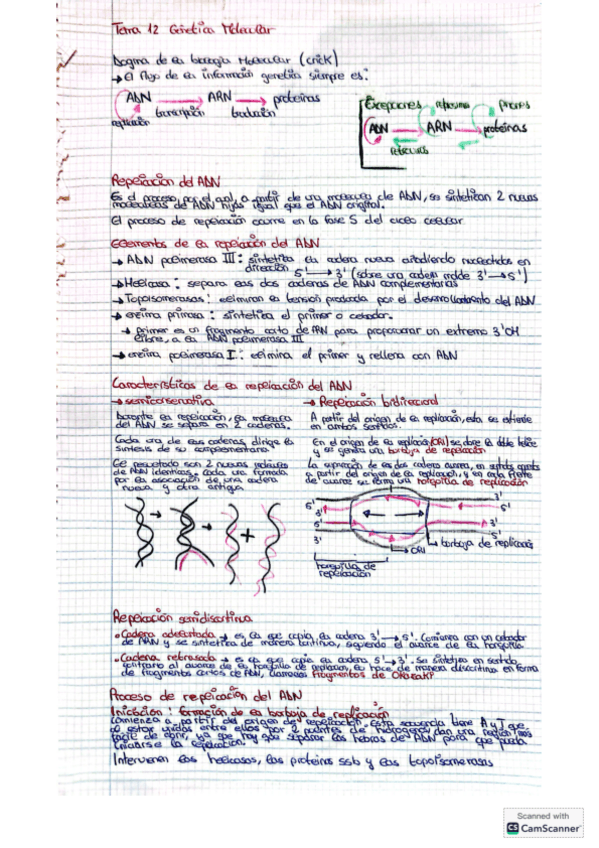 Tema 12 Genética Molecular
Dogma de la biología Molecular (Crick)
→ El flujo de la información genética siempre es:
ADN → ARN → proteínas
replicación transcripción traducción
Excepciones retrovirus priones
ADN → ARN → proteínas
retrovirus
Replicación del ADN
Es el proceso, por el cual, a partir de una molécula de ADN, se sintetizan 2 nuevas
moléculas de ADN hijas igual que el ADN original.
El proceso de replicación ocurre en la fase S del ciclo celular
Elementos de la replicación del ADN
→ ADN polimerasa III: sintetiza la cadena nueva añadiendo nucleótidos en
dirección 5' → 3' (sobre una cadena molde 3' → 5')
→ Helicasa: separa las dos cadenas de ADN complementarias
→ Topoisomerasas: eliminan la tensión producida por el desenrollamiento del ADN
→ enzima primasa: sintetiza el primer o cebador.
→ primer es un fragmento corto de ARN para proporcionar un extremo 3'OH
libre, a la ADN polimerasa III
→ enzima polimerasa I: elimina el primer y rellena con ADN
Características de la replicación del ADN
→ semiconservativa
Durante la replicación, la molécula
del ADN se separa en 2 cadenas.
Cada una de las cadenas, dirige la
síntesis de su complementaria
El resultado son 2 nuevas moléculas
de ADN idénticas, cada una formada
por la asociación de una cadena
nueva y otra antigua
→ Replicación bidireccional
A partir del origen de la replicación, esta se extiende
en ambos sentidos.
En el origen de la replicación (ORI) se abre la doble hélice
y se genera una burbuja de replicación
La separación de las dos cadenas avanza, en sentidos opuestos
a partir del origen de replicación, y en cada frente
de avance se forma una horquilla de replicación
+
5' 3'
3' 5'
5' 3'
3' 5'
ORI
burbuja de replicación
horquilla de
replicación
Replicación semidiscontinua
• Cadena adelantada → es la que copia la cadena 3' → 5'. Comienza con un cebador
de ARN y se sintetiza de manera continua, siguiendo el avance de la horquilla
• Cadena retrasada → es la que copia la cadena 5' → 3'. Se sintetiza en sentido
contrario al avance de la horquilla de replicación, lo hace de manera discontinua en forma
de fragmentos cortos de ADN, llamados fragmentos de OKAZAKI
Proceso de replicación del ADN
Iniciación: formación de la burbuja de replicación
Comienza a partir del origen de replicación. Esta secuencia tiene A y T que
al estar unidos entre ellos por 2 puentes de hidrógeno, dan una región más
fácil de abrir, ya que hay que separar las hebras de ADN para que pueda
iniciarse la replicación.
Intervienen las helicasas, las proteínas ssb y las topoisomerasas
Scanned with
CS CamScanner